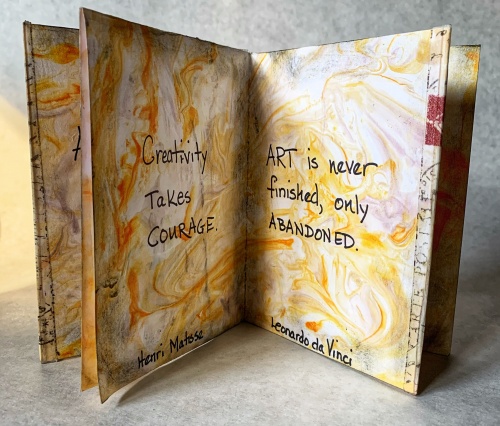 Creativity
Takes
COURAGE.
Henri Matisse
ART is never
finished, only
ABANDONED.
Leonardo da Vinci